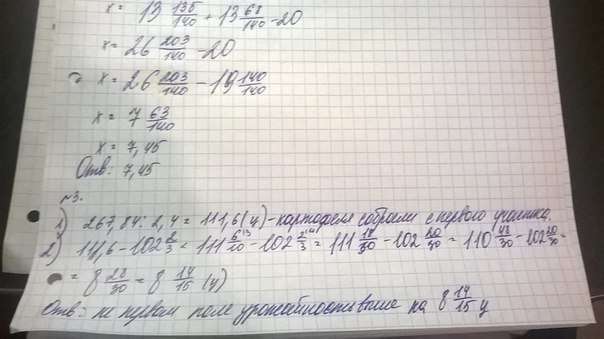 x = 13 135/140 + 13 68/140 - 20
x = 26 203/140 - 20
x = 26 203/140 - 19 140/140
x = 7 63/140
x = 7,45
Отв: 7,45
№3.
1) 267,84 : 2,4 = 111,6 (ц) - картофеля собрали с первого участка.
2) 111,6 - 102 2/3 = 111 6/10 - 102 2/3 = 111 18/30 - 102 20/30 = 110 48/30 - 102 20/30 =
= 8 28/30 = 8 14/15 (ц)
Отв: на первом поле урожайность выше на 8 14/15 ц